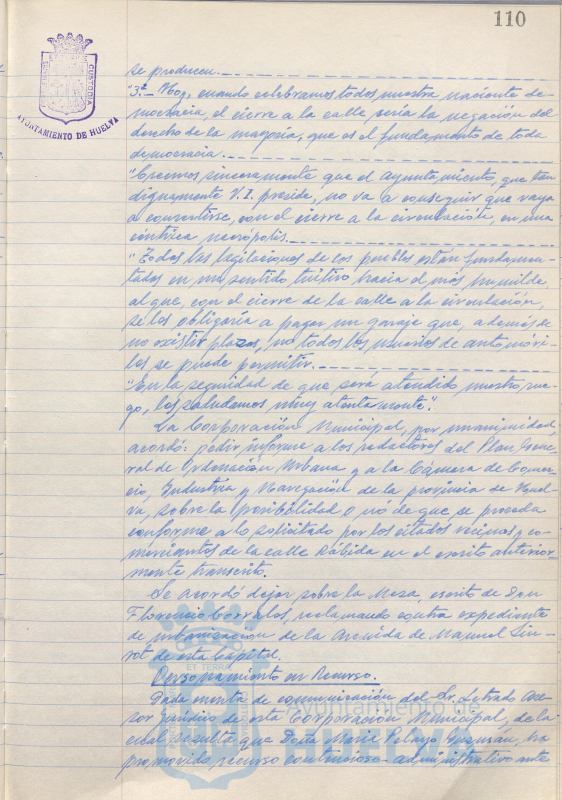 110
CUSTODIA
AYUNTAMIENTO DE HUELVA
se producen.
"3ª- Hoy, cuando celebramos todos nuestra naciente de-
mocracia, el cierre a la calle sería la negación del
derecho de la mayoría, que es el fundamento de toda
democracia.
"Creemos sinceramente que el ayuntamiento, que tan
dignamente V.I. preside, no va a conseguir que vaya
a convertirse, con el cierre a la circulación, en una
céntrica necrópolis.
"Todas las legislaciones de los pueblos están fundamen-
tadas en un sentido tuitivo hacia el más humilde,
al que, con el cierre de la calle a la circulación,
se los obligaría a pagar un garaje que, además de
no existir plazas, no todos los usuarios de automóvi-
les se puede permitir.
"En la seguridad de que será atendido nuestro rue-
go, les saludamos muy atentamente".
La Corporación Municipal, por unanimidad,
acordó: pedir informe a los redactores del Plan Gene-
ral de Ordenación Urbana y a la Cámara de Comer-
cio, Industria y Navegación de la provincia de Huel-
va, sobre la posibilidad o no de que se proceda
conforme a lo solicitado por los citados vecinos y co-
merciantes de la calle Rábida en el escrito anterior-
mente transcrito.
Se acordó dejar sobre la Mesa, escrito de Don
Florencio Corrales, reclamando contra expediente
de urbanización de la Avenida de Manuel Siu-
rot de esta Capital.
Personamiento en Recurso.
Dada cuenta de comunicación del Sr. Letrado Ase-
sor jurídico de esta Corporación Municipal, de la
cual resulta que Doña María Pelayo Guzmán, ha
promovido recurso contencioso-administrativo ante
Ayuntamiento de
HUELVA